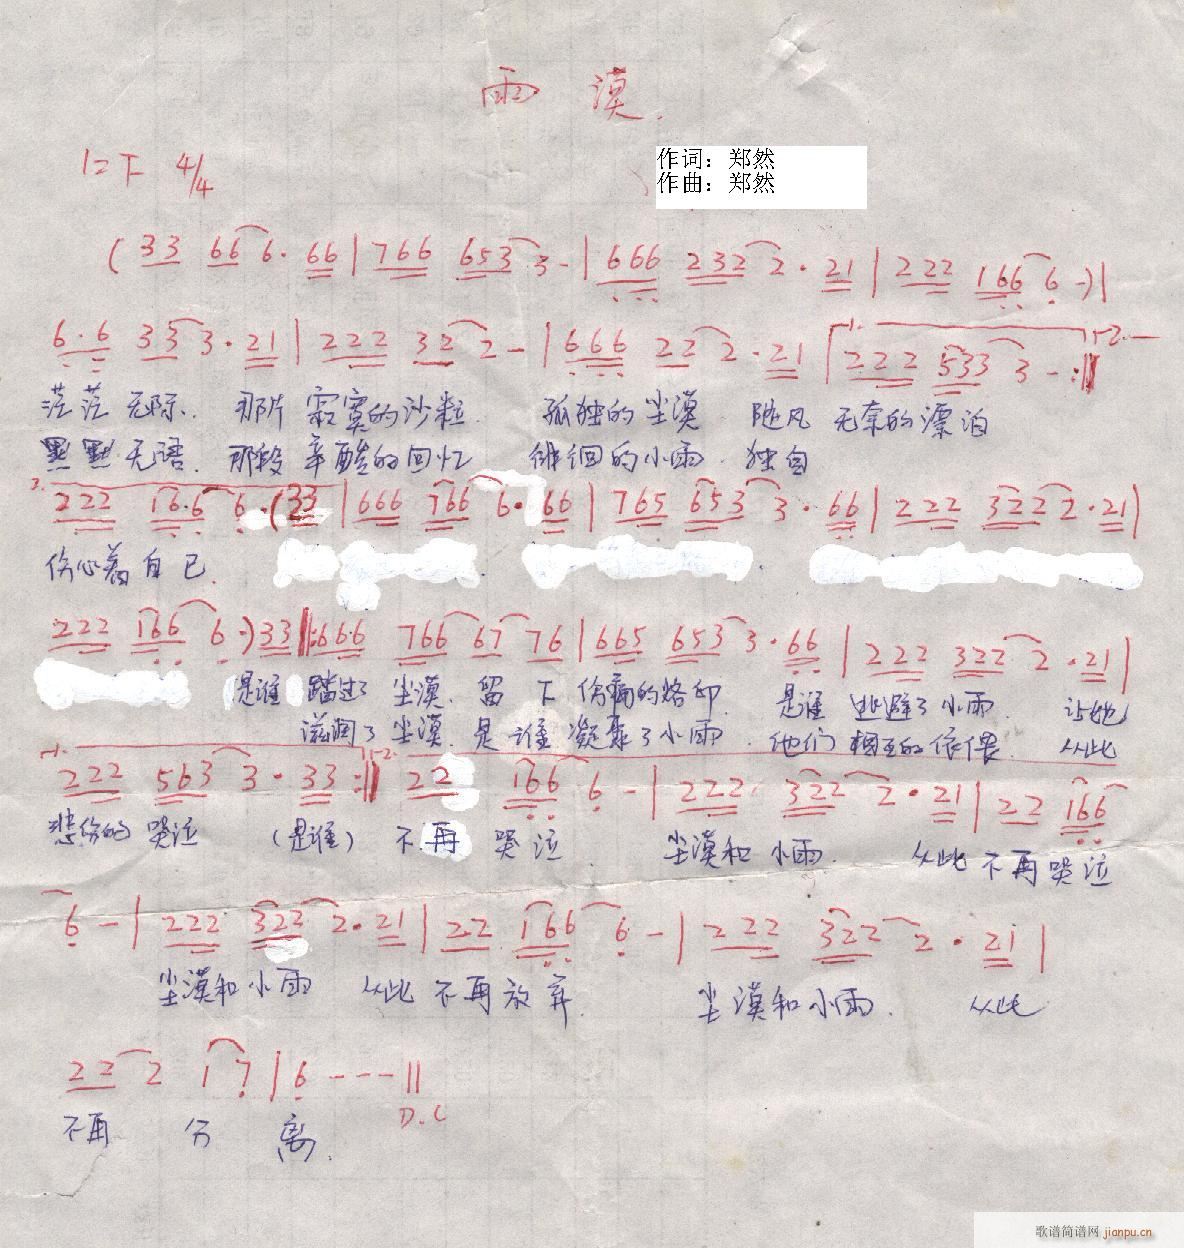 雨漠.
1=F 4/4
作词：郑然
作曲：郑然
( 33 66 6· 66 | 766 653 3 - | 666 232 2· 21 | 222 166 6 -) |
6·6 33 3· 21 | 222 32 2 - | 666 22 2· 21 | 1. 222 533 3 - :|| 2.
茫茫无际. 那片寂寞的沙粒. 孤独的尘漠 随风无奈的漂泊
默默无语. 那段辛酸的回忆 徘徊的小雨. 独自
2. 222 16·6 6· (33 | 666 766 6· 66 | 765 653 3· 66 | 222 322 2· 21 |
伤心着自已.
222 166 6·) 33 ||: 666 766 67 76 | 665 653 3· 66 | 222 322 2· 21 |
是谁 踏过了尘漠. 留下伤痛的烙印. 是谁逃避了小雨 让她
滋润了尘漠. 是谁凝聚了小雨. 他们相互的依偎. 从此
1. 222 563 3· 33 :|| 2. 22 166 6 - | 222 322 2· 21 | 22 166
悲伤的哭泣 (是谁) 不再哭泣. 尘漠和小雨. 从此不再哭泣
6 - | 222 322 2· 21 | 22 166 6 - | 222 322 2· 21 |
尘漠和小雨 从此不再放弃. 尘漠和小雨. 从此
22 2 1 7 | 6 - - - ||
D.C
不再 分 离.
歌谱简谱网 jianpu.cn